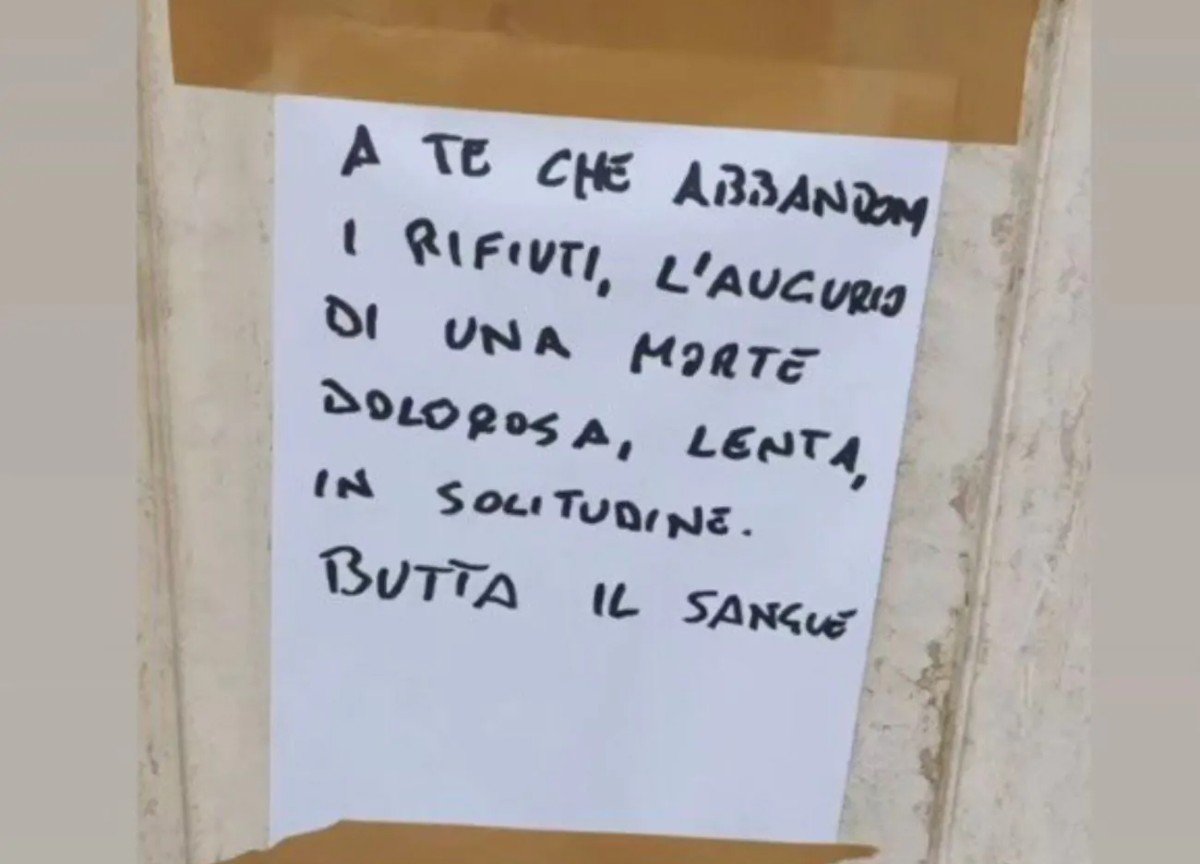 A TE CHE ABBANDONI
I RIFIUTI, L'AUGURIO
DI UNA MORTE
DOLOROSA, LENTA,
IN SOLITUDINE.
BUTTA IL SANGUE